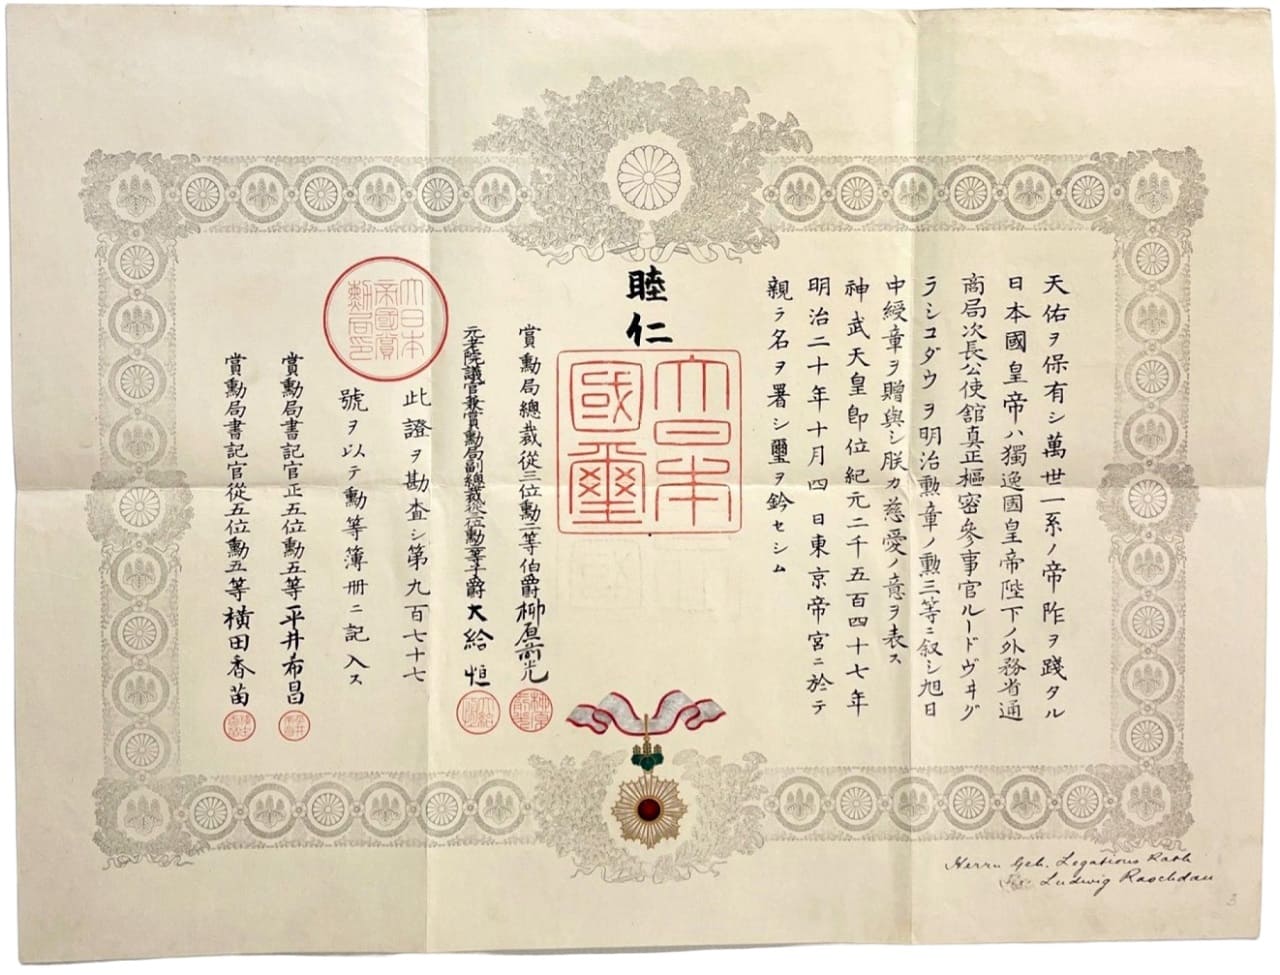 天佑ヲ保有シ萬世一系ノ帝阼ヲ踐タル
日本國皇帝ハ獨逸國皇帝陛下ノ外務省通
商局次長公使館真正樞密參事官ルードヴヰグ
ラシユダウヲ明治勲章ノ勲三等ニ叙シ旭日
中綬章ヲ贈與シ朕カ慈愛ノ意ヲ表ス
神武天皇即位紀元二千五百四十七年
明治二十年十月四日東京帝宮ニ於テ
親ラ名ヲ署シ璽ヲ鈐セシム
睦仁
大日本
國璽
賞勲局總裁從三位勲一等伯爵柳原前光
元老院議官兼賞勲局副總裁從三位勲一等子爵大給恒
此證ヲ勘査シ第九百七十七
號ヲ以テ勲等簿册ニ記入ス
大日本
帝國賞
勲局印
賞勲局書記官正五位勲五等平井希昌
賞勲局書記官從五位勲五等横田香苗
Herrn Geh. Legations Rath
Ludwig Raschdau
3